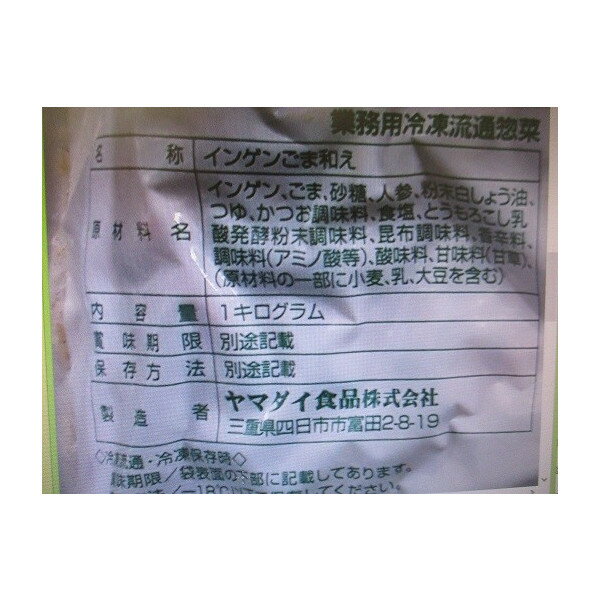 業務用冷凍流通惣菜
名 称 インゲンごま和え
原材料名 インゲン、ごま、砂糖、人参、粉末白しょう油、
つゆ、かつお調味料、食塩、とうもろこし乳
酸発酵粉末調味料、昆布調味料、香辛料、
調味料(アミノ酸等)、酸味料、甘味料(甘草)、
(原材料の一部に小麦、乳、大豆を含む)
内容量 1キログラム
賞味期限 別途記載
保存方法 別途記載
製造者 ヤマダイ食品株式会社
三重県四日市市富田2-8-19
◇冷凍流通・冷凍保存時◇
賞味期限/袋表面の下部に記載してあります。